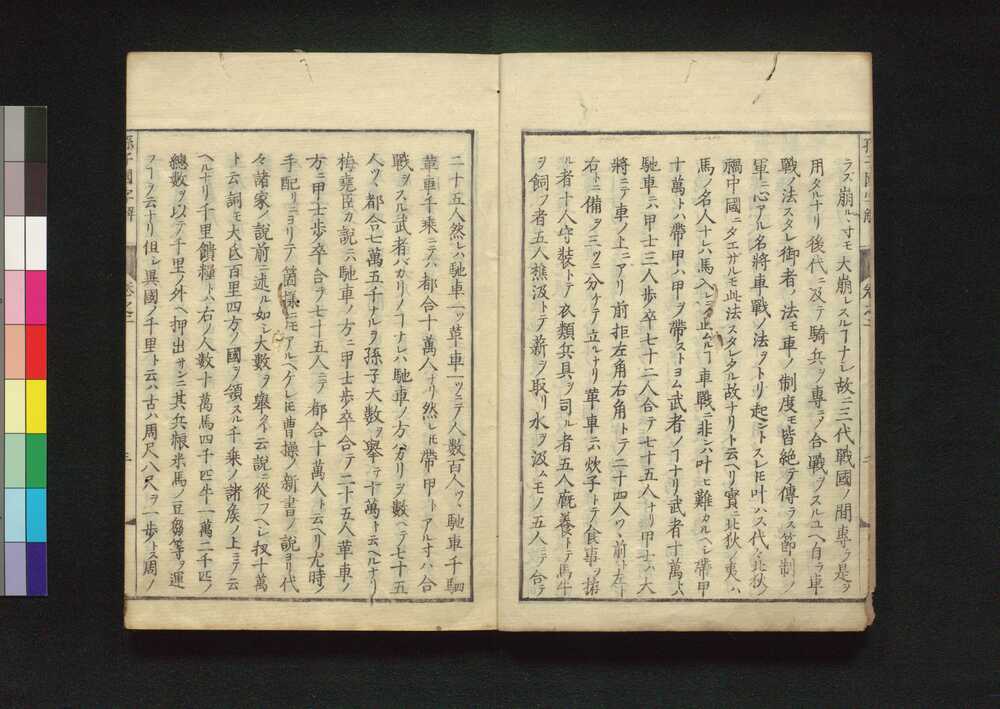 ラズ崩ルヽ寸モ大崩レスルヿナシ故ニ三代戰國ノ間専ラ是ヲ
用タルナリ後代ニ及テ騎兵ヲ専ラヲ合戰ヲスルユヘ自ラ車
戰ノ法スタレ御者ノ法モ車ノ制度モ皆絶テ傳ラス節制ノ
軍ニ心アル名將車戰ノ法ヲトリ起ントスレ𪜈叶ハス代々北狄ノ
禍中國ニタエサルモ此法スタレタル故ナリト云ヘリ實ニ北狄ノ夷ハ
馬ノ名人ナレハ馬入レヲ止ムルヿ車戰ニ非ンハ叶ヒ難カルヘシ帶甲
十萬トハ帶甲ハ甲ヲ帶ストヨム武者ノヿナリ武者十萬トハ
馳車ニハ甲士三人歩卒七十二人合テ七十五人ナリ甲士ハ大
將ニテ車ノ上ニアリ前拒左角右角トテ二十四人ツヽ前ト左ト
右トニ備ヲ三ツニ分ケテ立ルナリ革車ニハ炊子トテ食事ヲ拵
ル者十人守裝トテ衣類兵具ヲ司ル者五人厩養トテ馬牛
ヲ飼フ者五人樵汲トテ薪ヲ取リ水ヲ汲ムモノ五人ニテ合テ
二十五人然レハ馳車一ツ革車一ツニテ人数百人ツヽ馳車千駟
革車千乘ニテハ都合十萬人ナリ然レ𪜈帶甲トアル寸ハ合
戰ヲスル武者バカリノヿナレハ馳車ノ方バカリヲ數ヘテ七十五
人ツヽ都合七萬五千ナルヲ孫子大数ヲ擧テ十萬ト云ヘルナリ
梅堯臣カ説ニハ馳車ノ方ニ甲士歩卒合テ七十五人革車ノ
方ニ甲士歩卒合テ二十五人ニテ都合十萬人ト云ヘリ九時ノ
手配リニヨリテ箇様ニモアルヘケレ𪜈曹操ノ新書ノ説ヨリ代
々諸家ノ説前ニ述ル如シ大數ヲ擧タト云説ニ從フヘシ扨十萬
ト云詞モ大氐百里四方ノ國ヲ領スル千乘ノ諸矦ノ上ヨテ云
ヘルナリ千里饋糧トハ右ノ人數十萬馬四千匹牛一萬二千匹ノ
總數ヲ以テ千里ノ外ヘ押出サンニ其兵粮米馬ノ豆芻等ヲ運
フヿヲ云ナリ但レ異國ノ千里ト云ハ古ハ周尺八尺ヲ一歩トス周ノ
孫子國字解